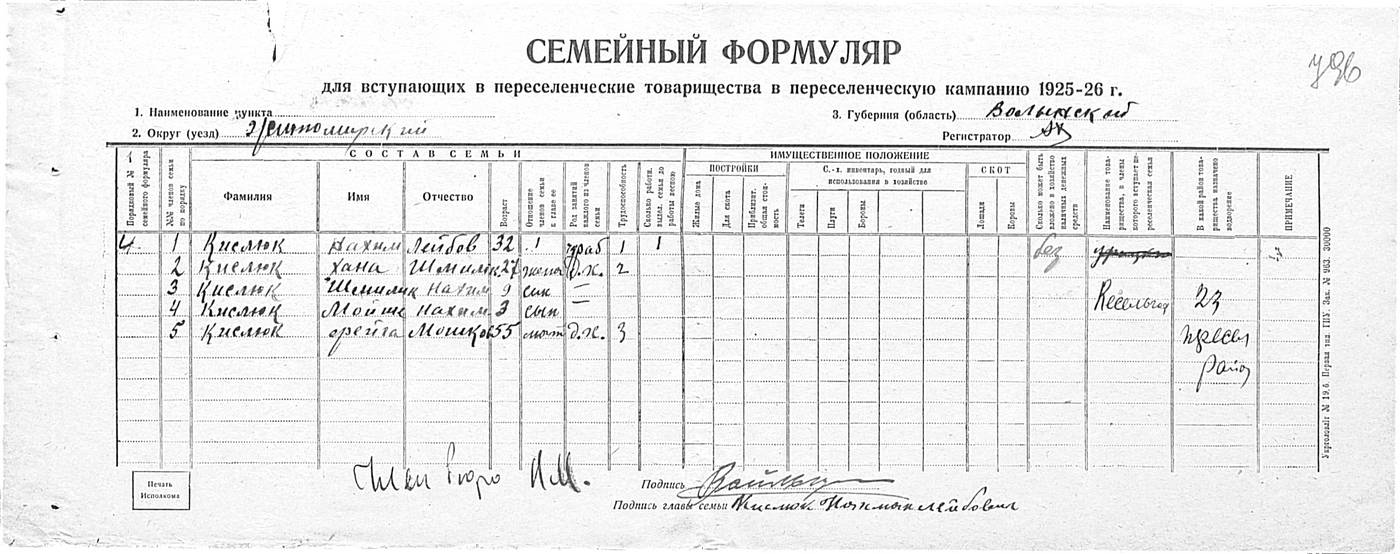 СЕМЕЙНЫЙ ФОРМУЛЯР
для вступающих в переселенческие товарищества в переселенческую кампанию 1925-26 г.
1. Наименование пункта
3. Губерния (область) Волынский
2. Округ (уезд) Житомирский
Регистратор
СОСТАВ СЕМЬИ
ИМУЩЕСТВЕННОЕ ПОЛОЖЕНИЕ
Порядковый № семейного формуляра
№№ членов семьи по порядку
Фамилия
Имя
Отчество
Возраст
Отношение членов семьи к главе ее
Род занятий каждого из членов семьи
Трудоспособность
Сколько работн. выдел. семья до работы весною
ПОСТРОЙКИ
Жилые дома
Для скота
Приблизит. общая стоимость
С.-х. инвентарь, годный для использования в хозяйстве
Телеги
Плуги
Бороны
СКОТ
Лошади
Коровы
Сколько может быть вложено в хозяйство наличных денежных средств
Наименование товарищества, в члены которого вступает переселенческая семья
В какой район товарищества назначено водворение
ПРИМЕЧАНИЕ
4. 1 Кислюк Нахим Лейбов 32 1 1 без
2 Кислюк Хана Шмилик 27 жена д.х. 2
3 Кислюк Шмилик Нахим 9 сын —
4 Кислюк Мойше Нахим 3 сын — 23
5 Кислюк Фрейга Мошков 55 мат д.х. 3
район
Печать Исполкома
Бюро
Подпись
Подпись главы семьи Кислюк Нахман Лейбович
Укрголовліт № 19,6. Первая тип. ГПУ. Зак. № 963. 30000